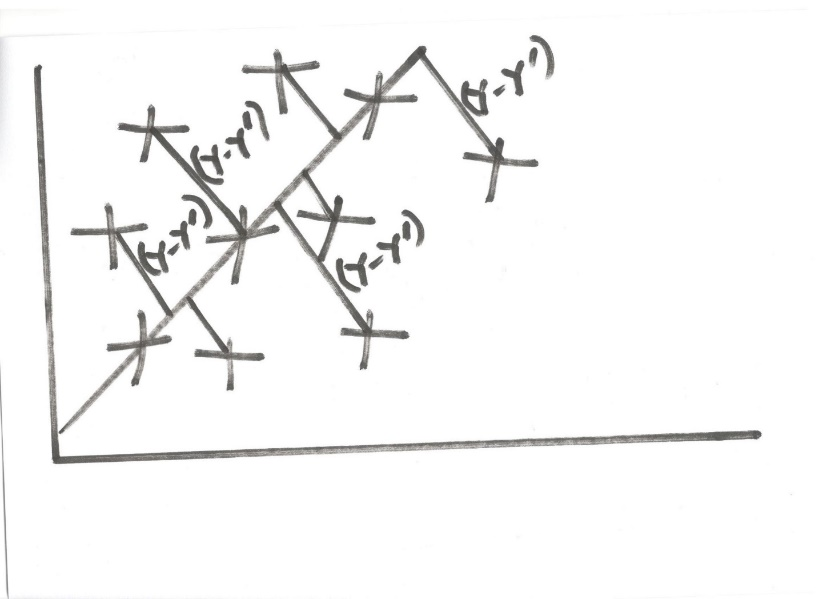 (Y-Y')
(Y-Y')
(Y-Y')
(Y-Y')